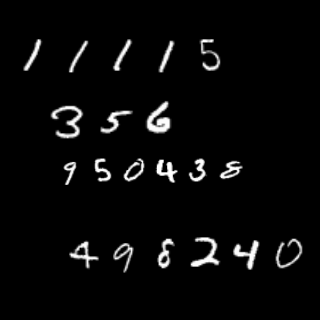 11115
356
950438
498240